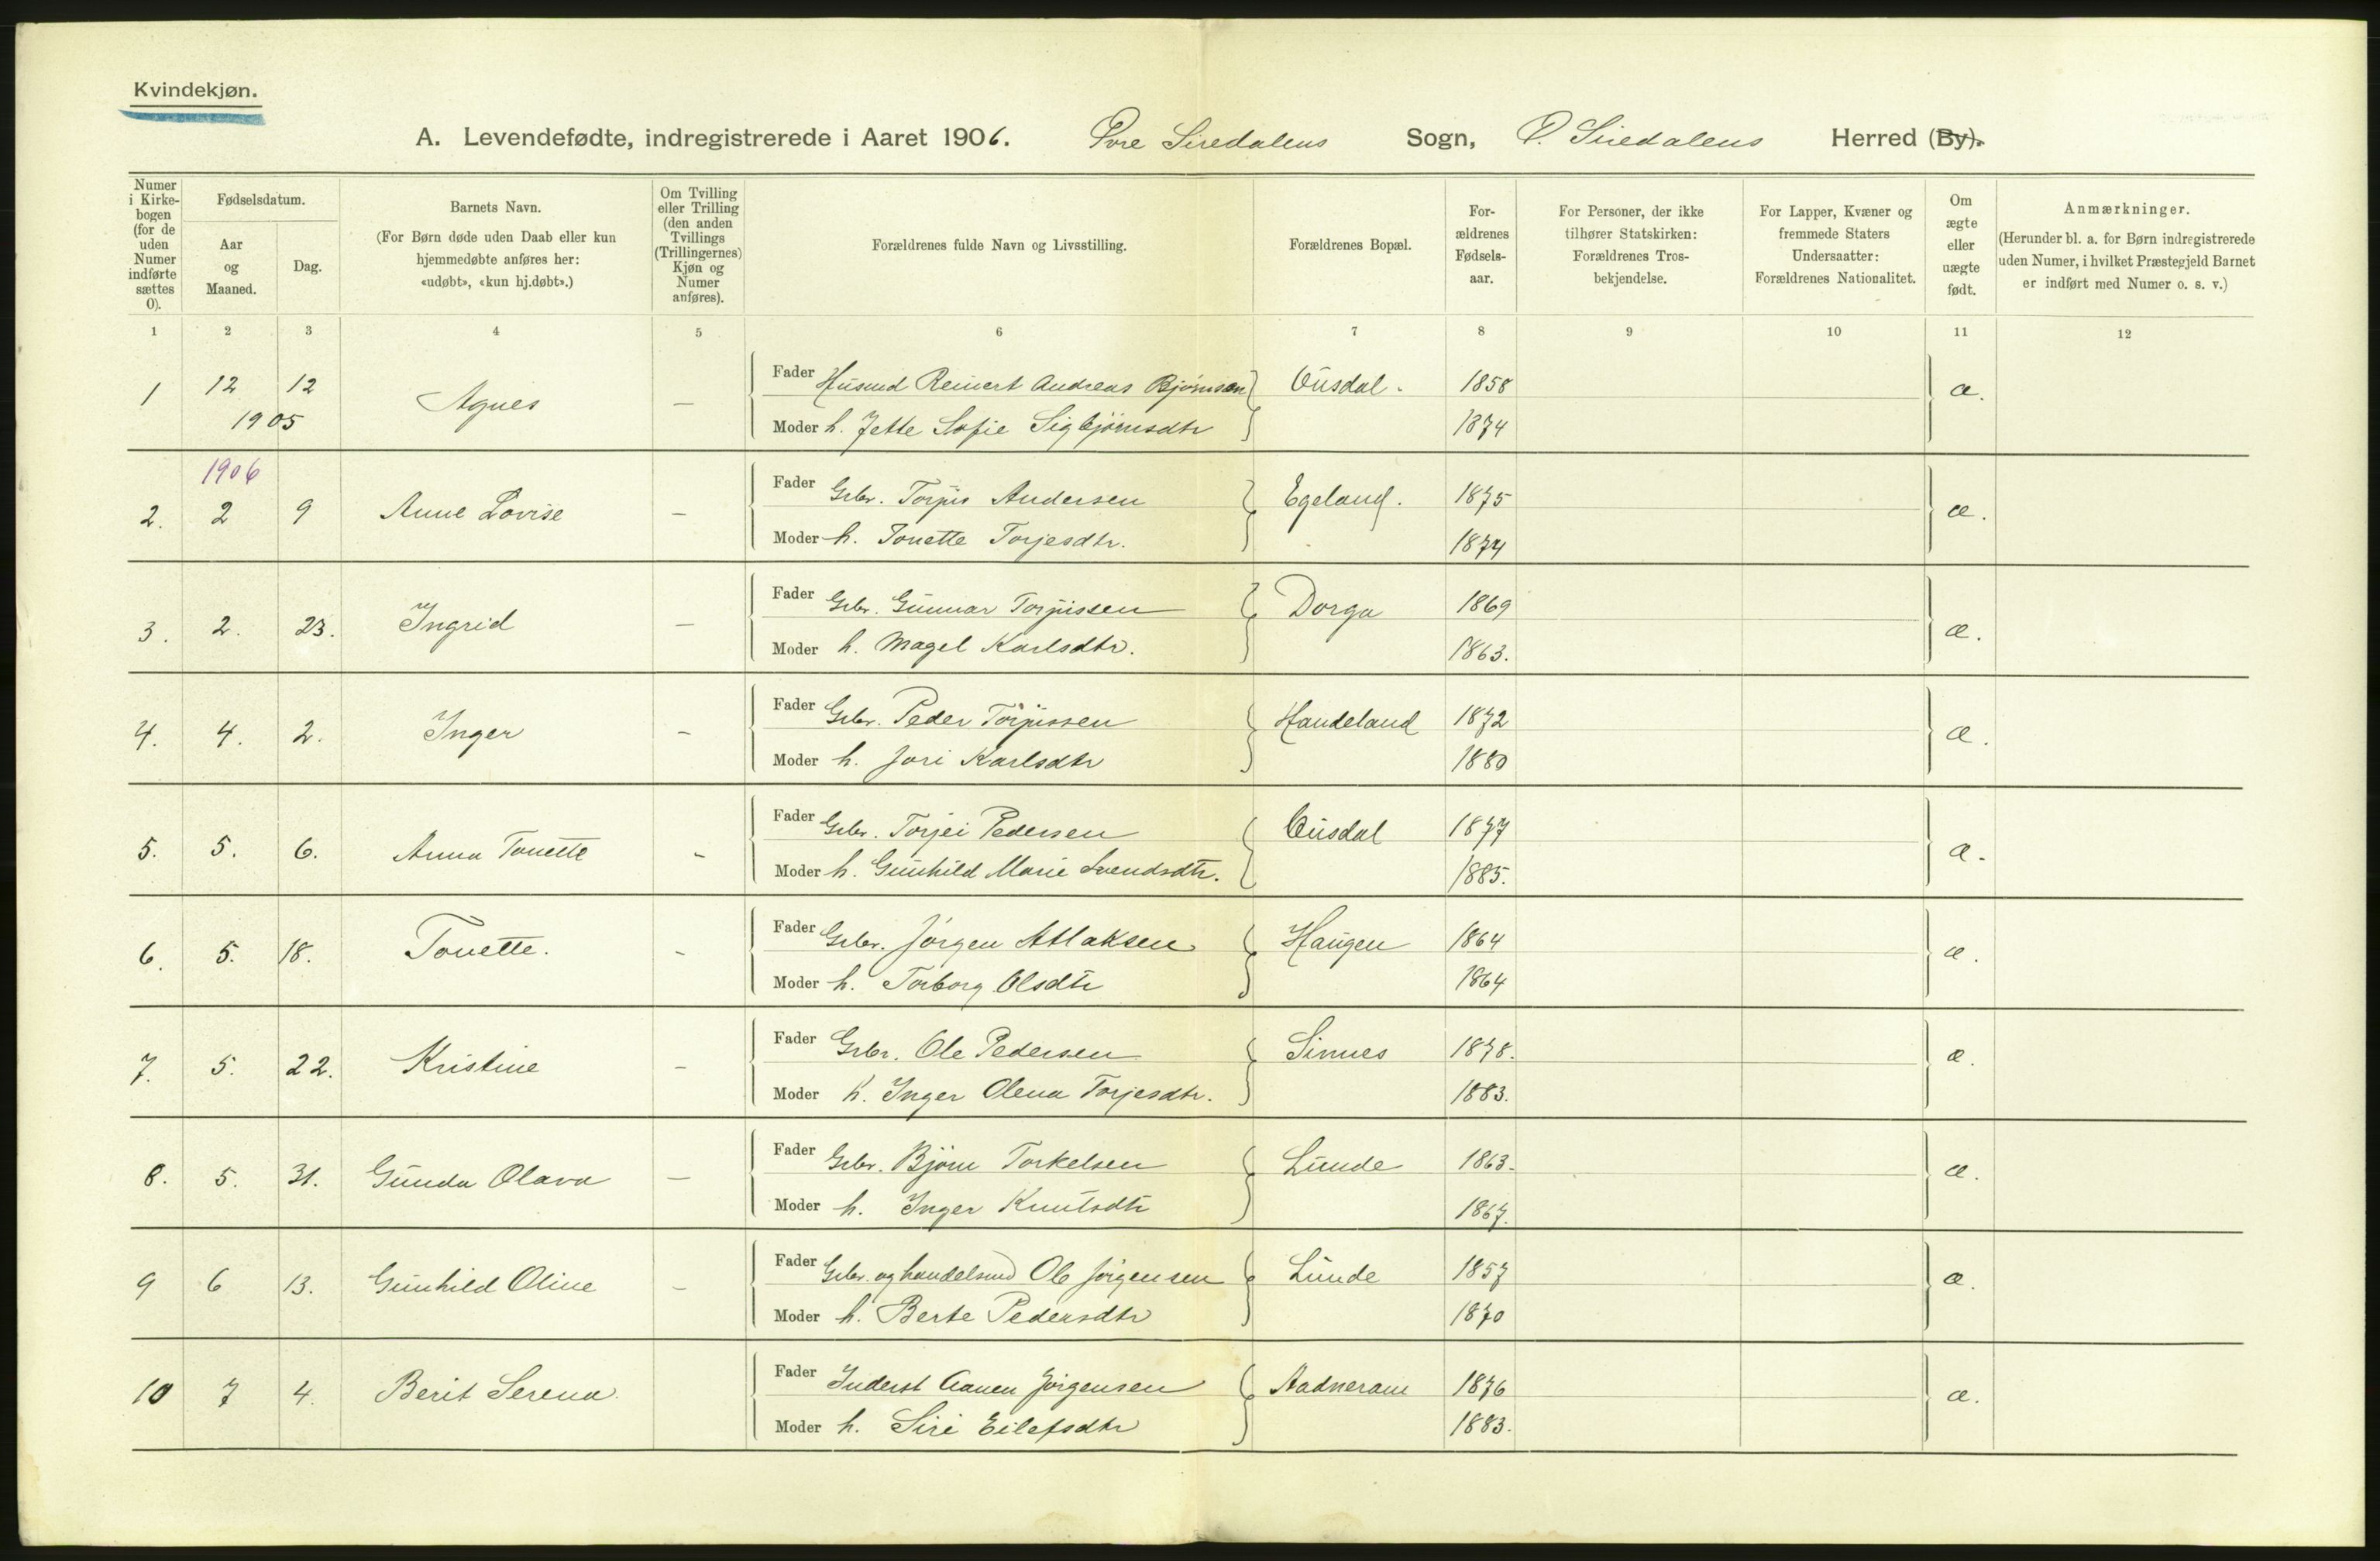 Kvindekjøn.
A. Levendefødte, indregistrerede i Aaret 1906. Øvre Siredalens Sogn, Ø. Siredalens Herred (By).
Numer i Kirkebogen (for de uden Numer indførte sættes 0).
Fødselsdatum.
Aar og Maaned.
Dag.
Barnets Navn.
(For Børn døde uden Daab eller kun hjemmedøbte anføres her: «udøbt», «kun hj.døbt».)
Om Tvilling eller Trilling (den anden Tvillings (Trillingernes) Kjøn og Numer anføres).
Forældrenes fulde Navn og Livsstilling.
Forældrenes Bopæl.
Forældrenes Fødselsaar.
For Personer, der ikke tilhører Statskirken: Forældrenes Trosbekjendelse.
For Lapper, Kvæner og fremmede Staters Undersaatter: Forældrenes Nationalitet.
Om ægte eller uægte født.
Anmærkninger.
(Herunder bl. a. for Børn indregistrerede uden Numer, i hvilket Præstegjeld Barnet er indført med Numer o. s. v.)
1 2 3 4 5 6 7 8 9 10 11 12
1 12 12 Agnes — Fader Husmd Reinert Andreas Bjørnsen Ousdal. 1858 æ.
1905 Moder h. Jette Sofie Sigbjørnsdtr 1874
1906
2. 2 9 Anne Lovise — Fader Grbr. Torjus Andersen Egeland. 1875 æ.
Moder h. Tonette Torjesdtr. 1874
3. 2. 23. Ingrid — Fader Grbr. Gunnar Torjussen Dorga 1869 æ.
Moder h. Magel Karlsdtr. 1863.
4. 4. 2. Inger — Fader Grbr. Peder Torjussen Handeland 1872 æ.
Moder h. Jori Karlsdtr 1880
5. 5. 6. Anna Tonette - Fader Grbr. Torjei Pedersen Ousdal 1877 æ.
Moder h. Gunhild Marie Svendsdtr. 1885.
6. 5. 18. Tonette. - Fader Grbr. Jørgen Atlaksen Haugen 1864 æ.
Moder h. Torborg Olsdtr 1864
7. 5. 22. Kristine — Fader Grbr. Ole Pedersen Sinnes 1878. æ.
Moder h. Inger Olena Torjesdtr. 1883.
8. 5. 31. Gunda Olava — Fader Grbr. Bjørn Torkelsen Lunde 1863. æ.
Moder h. Inger Knutsdtr 1867.
9 6 13. Gunhild Oline — Fader Grbr. og handelsmd Ole Jørgensen Lunde 1857 æ.
Moder h. Berte Pedersdtr 1870
10 7 4. Berit Serena. Fader Inderst Aanen Jørgensen Aadneram 1876 æ.
Moder h. Siri Eilefsdtr 1883.